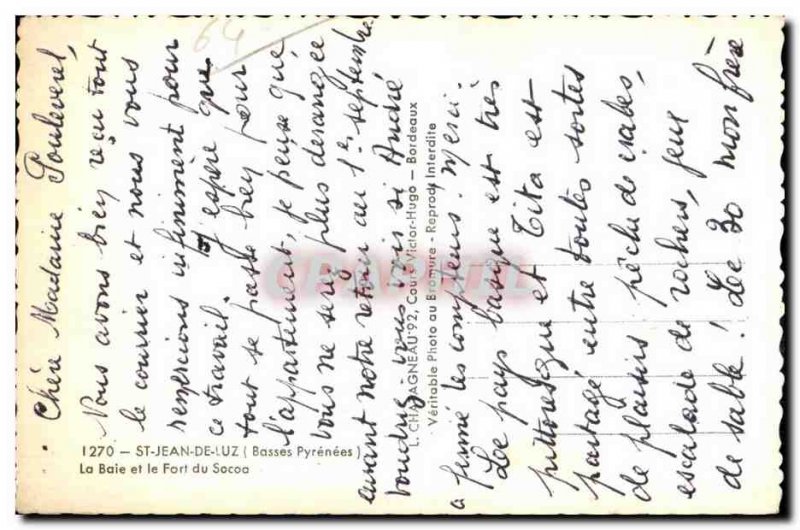 64
Chère Madame Pouleverel,
Vous avons bien reçu tout
le courrier et nous vous
remercions infiniment pour
ce travail. J'espère que
tout se passe bien pour
l'appartement, je pense que
vous ne serez plus dérangée
avant notre retour au 1er septembre.
Voudriez-vous voir si André
a fermé les compteurs. Merci.
Le pays basque est très
pittoresque et Tita est
partagé, entre toutes sortes
de plaisirs, pêche de crabes,
escalade de rochers, jeux
de sable! Le 30 mon frère
1270 — ST-JEAN-DE-LUZ (Basses Pyrénées)
La Baie et le Fort du Socoa
L. CHATAGNEAU 92, Cours Victor-Hugo — Bordeaux
Véritable Photo au Bromure - Reprod. Interdite